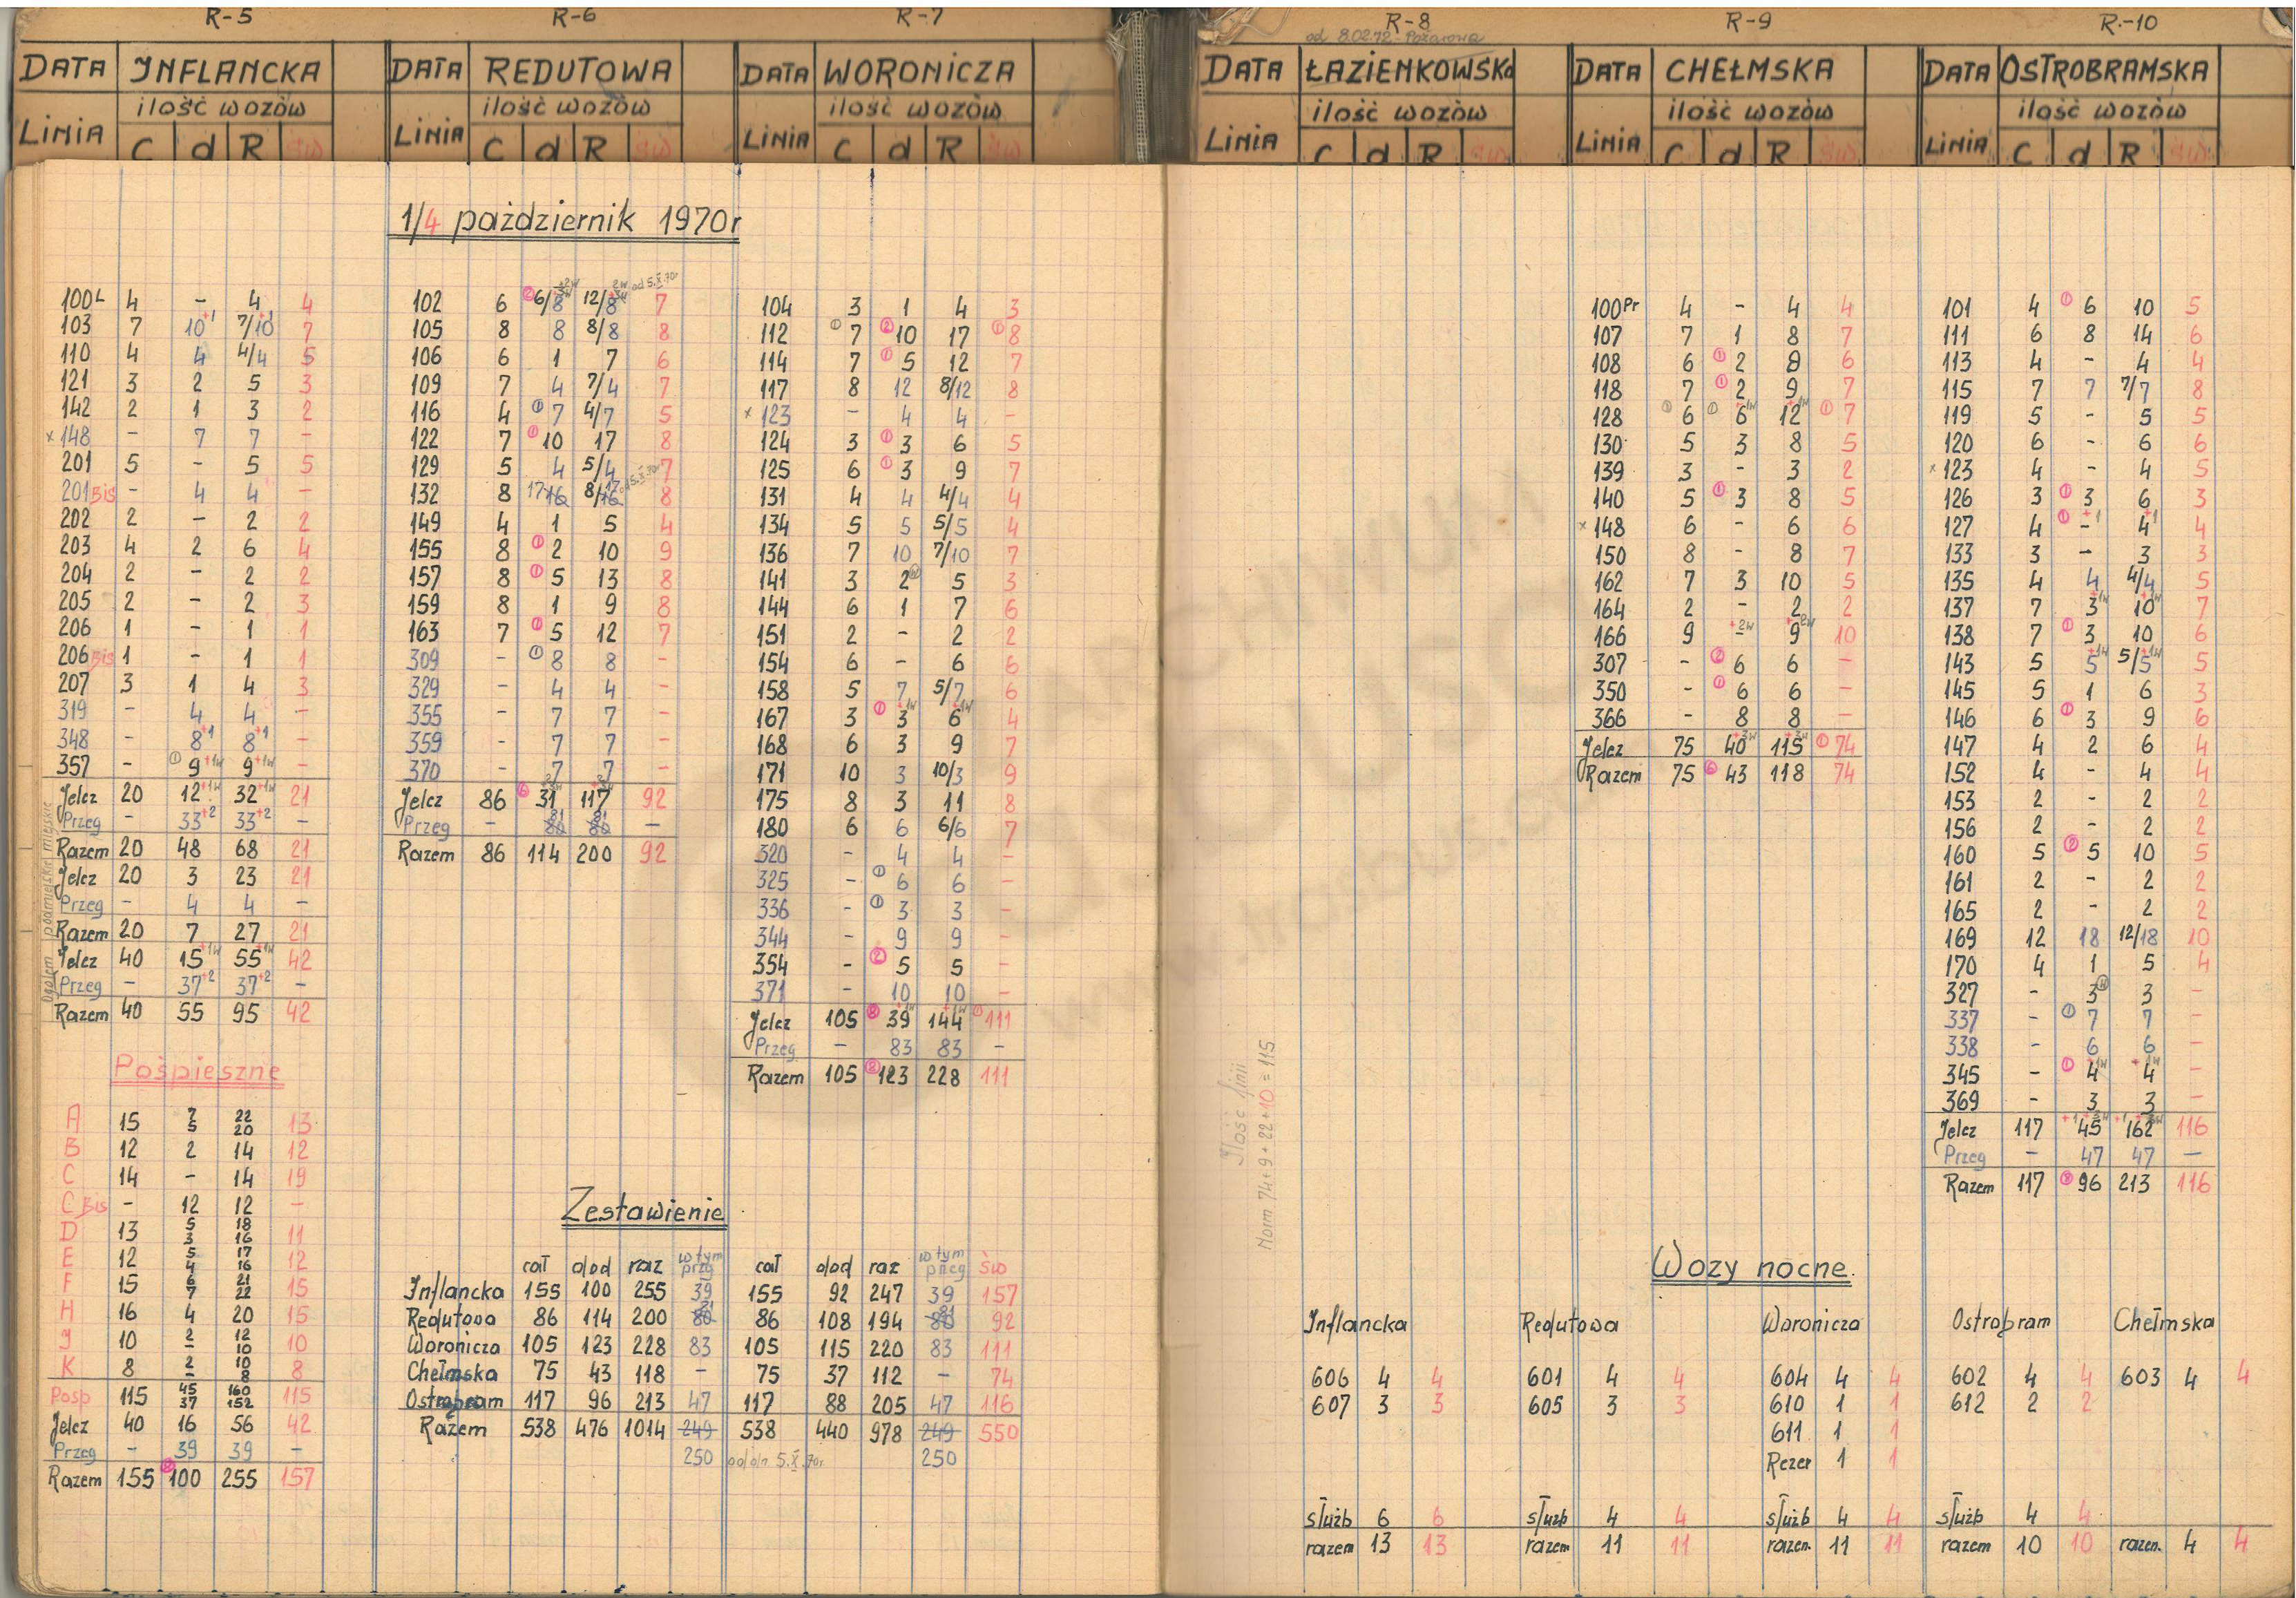 R-5 R-6 R-7 R-8 R-9 R-10
od 8.02.72 - Pożarowa
DATA INFLANCKA
ilość wozów
LINIA C d R św
DATA REDUTOWA
ilość wozów
LINIA C d R św
DATA WORONICZA
ilość wozów
LINIA C d R św
DATA ŁAZIENKOWSKa
ilość wozów
LINIA C d R
DATA CHEŁMSKA
ilość wozów
LINIA C d R św
DATA OSTROBRAMSKA
ilość wozów
LINIA C d R św
1/4 pażdziernik 1970r
100L 4 - 4 4
103 7 10+1 7/10+1 7
110 4 4 4/4 5
121 3 2 5 3
142 2 1 3 2
x 148 - 7 7 -
201 5 - 5 5
201 Bis - 4 4 -
202 2 - 2 2
203 4 2 6 4
204 2 - 2 2
205 2 - 2 3
206 1 - 1 1
206 Bis 1 - 1 1
207 3 1 4 3
319 - 4 4 -
348 - 8+1 8+1 -
357 - ① 9+1w 9+1w -
Ogółem podmiejskie miejskie
Jelcz 20 12+1w 32+1w 21
Przeg - 33+2 33+2 -
Razem 20 48 68 21
Jelcz 20 3 23 21
Przeg - 4 4 -
Razem 20 7 27 21
Jelcz 40 15+1w 55+1w 42
Przeg - 37+2 37+2 -
Razem 40 55 95 42
Pośpieszne
A 15 7/5 22/20 13
B 12 2 14 12
C 14 - 14 19
C Bis - 12 12 -
D 13 5/3 18/16 11
E 12 5/4 17/16 12
F 15 6/7 21/22 15
H 16 4 20 15
J 10 2/- 12/10 10
K 8 2/- 10/8 8
Posp 115 45/37 160/152 115
Jelcz 40 16 56 42
Przeg - 39 39 -
Razem 155 ⑧ 100 255 157
102 6 ② 6/8 12/8 od 5.X.70r 7
105 8 8 8/8 8
106 6 1 7 6
109 7 4 7/4 7
116 4 ① 7 4/7 5
122 7 ① 10 17 8
129 5 4 5/4 7
132 8 17 16 8/16 17 od 5.X.70r 8
149 4 1 5 4
155 8 ① 2 10 9
157 8 ① 5 13 8
159 8 1 9 8
163 7 ① 5 12 7
309 - ① 8 8 -
329 - 4 4 -
355 - 7 7 -
359 - 7 7 -
370 - 7 7 -
Jelcz 86 ⑥ 31 117 92
Przeg - 81 80 81 80 -
Razem 86 114 200 92
104 3 1 4 3
112 ① 7 ② 10 17 ① 8
114 7 ① 5 12 7
117 8 12 8/12 8
x 123 - 4 4 -
124 3 ① 3 6 5
125 6 ① 3 9 7
131 4 4 4/4 4
134 5 5 5/5 4
136 7 10 7/10 7
141 3 2 5 3
144 6 1 7 6
151 2 - 2 2
154 6 - 6 6
158 5 7 5/7 6
167 3 ① 3+1w 6+1w 4
168 6 3 9 7
171 10 3 10/3 9
175 8 3 11 8
180 6 6 6/6 7
320 - 4 4 -
325 - ① 6 6 -
336 - ① 3 3 -
344 - 9 9 -
354 - ② 5 5 -
371 - 10 10 -
Jelcz 105 ⑧ 39+1w 144+1w ① 111
Przeg - 83 83 -
Razem 105 ⑧ 123 228 111
Zestawienie
cał dod raz w tym przg cał dod raz w tym przeg św
Inflancka 155 100 255 39 155 92 247 39 157
Redutowa 86 114 200 80 81 86 108 194 80 81 92
Woronicza 105 123 228 83 105 115 220 83 111
Chełmska 75 43 118 - 75 37 112 - 74
Ostrobram 117 96 213 47 117 88 205 47 116
Razem 538 476 1014 249 538 440 978 249 550
250 od dn 5.X.70r. 250
Ilość linii
Norm 74+9+22+10=115
100Pr 4 - 4 4
107 7 1 8 7
108 6 ① 2 8 6
118 7 ① 2 9 7
128 ① 6 ① 6+1w 12+1w ① 7
130 5 3 8 5
139 3 - 3 2
140 5 ① 3 8 5
x 148 6 - 6 6
150 8 - 8 7
162 7 3 10 5
164 2 - 2 2
166 9 -+2w 9+2w 10
307 - ② 6 6 -
350 - ① 6 6 -
366 - 8 8 -
Jelcz 75 40+3w 115+3w ① 74
Razem 75 ⑥ 43 118 74
101 4 ① 6 10 5
111 6 8 14 6
113 4 - 4 4
115 7 7 7/7 8
119 5 - 5 5
120 6 - 6 6
x 123 4 - 4 5
126 3 ① 3 6 3
127 4 ① -+1 4+1 4
133 3 - 3 3
135 4 4 4/4 5
137 7 3+1w 10+1w 7
138 7 ① 3 10 6
143 5 5+1w 5/5+1w 5
145 5 1 6 3
146 6 ① 3 9 6
147 4 2 6 4
152 4 - 4 4
153 2 - 2 2
156 2 - 2 2
160 5 ② 5 10 5
161 2 - 2 2
165 2 - 2 2
169 12 18 12/18 10
170 4 1 5 4
327 - 3 3 -
337 - ① 7 7 -
338 - 6 6 -
345 - ① 4+1w 4+1w -
369 - 3 3 -
Jelcz 117 +1 45+3w +1 162+3w 116
Przeg - 47 47 -
Razem 117 ⑧ 96 213 116
Wozy nocne.
Inflancka Redutowa Woronicza Ostrobram Chełmska
606 4 4 601 4 4 604 4 4 602 4 4 603 4 4
607 3 3 605 3 3 610 1 1 612 2 2
611 1 1
Rezer 1 1
służb 6 6 służb 4 4 służb 4 4 służb 4 4
razem 13 13 razem 11 11 razem. 11 11 razem 10 10 razem. 4 4